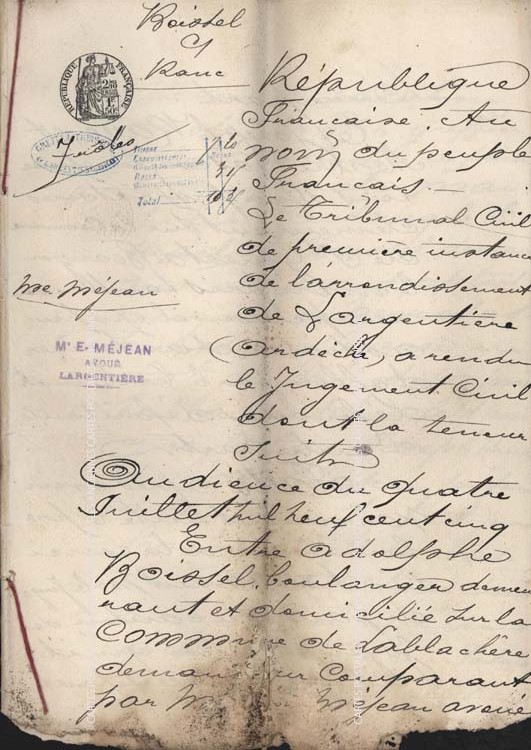 Boissel
Ranc
RÉPUBLIQUE FRANÇAISE
République
Française. Au
nom du peuple
Français.
Total
Le Tribunal Civil
de première instance
de l'arrondissement
Me Méjean
de Largentière
(Ardèche), a rendu
Me E. MÉJEAN
AVOUÉ
LARGENTIÈRE
le Jugement Civil
dont la teneur
suit
Audience du quatre
Juillet mil neuf cent cinq
Entre Adolphe
Boissel, boulanger demeu
rant et domicilié sur la
Commune de Lablachère
demandeur Comparant
par M Méjean avoué